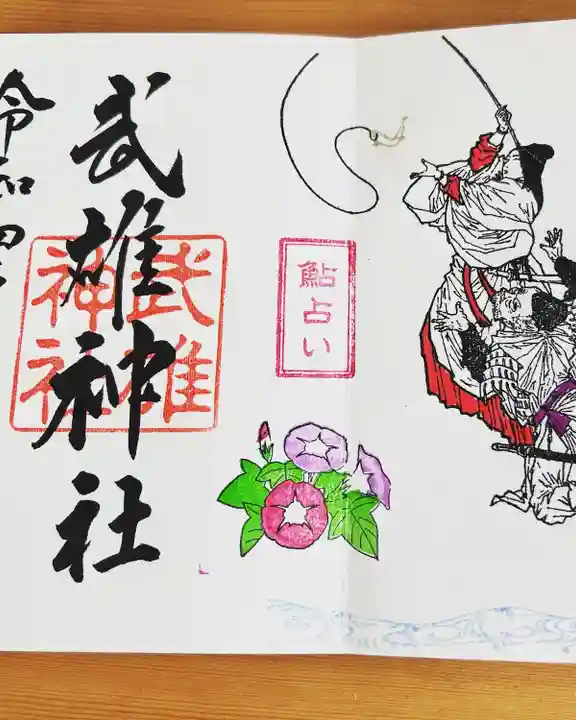 武雄神社
武雄
神社
鮎占い
令和四年